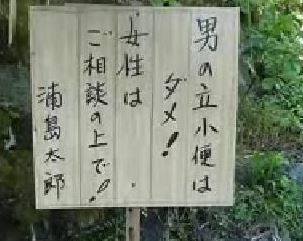 男の立小便は
ダメ!
女性は
ご相談の上で!!
浦島太郎